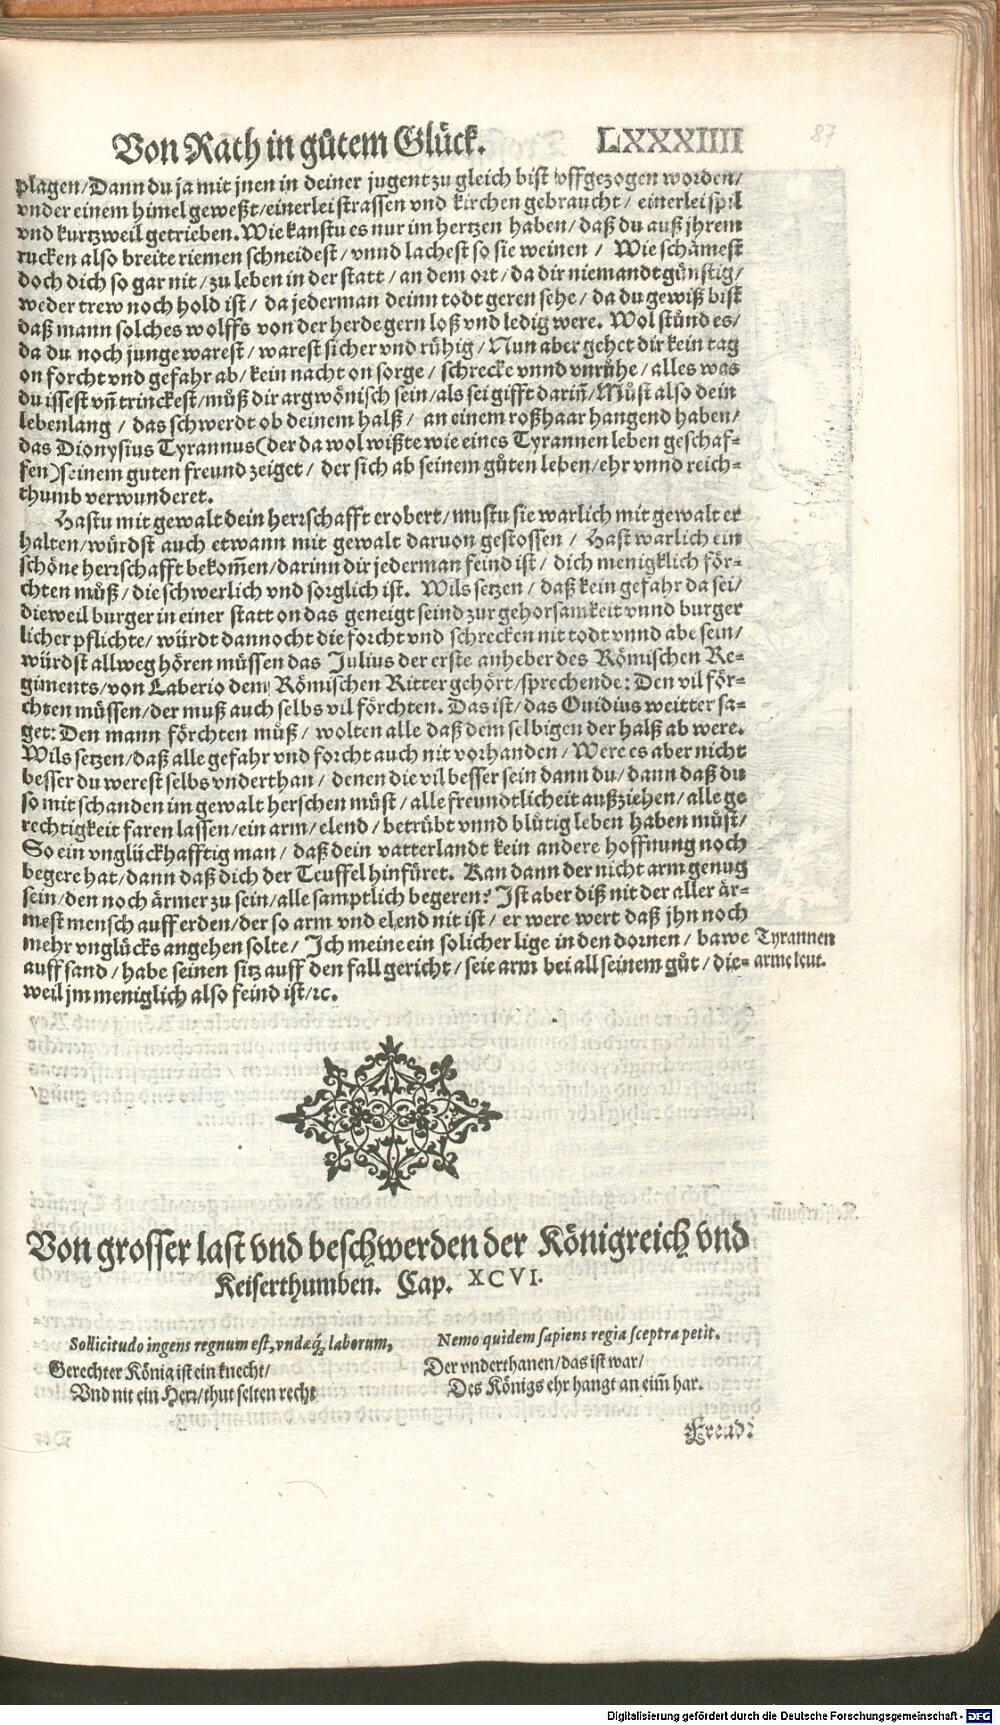 Von Rath in gůtem Glück. LXXXIIII
87
plagen/Dann du ja mit jnen in deiner jugent zu gleich bist vffgezogen worden/
vnder einem himel geweßt/einerlei strassen vnd kirchen gebraucht/ einerlei spil
vnd kurtzweil getrieben. Wie kanstu es nur im hertzen haben/ daß du auß jhrem
rucken also breite riemen schneidest/ vnnd lachest so sie weinen / Wie schämest
doch dich so gar nit/ zu leben in der statt/ an dem ort/ da dir niemandt günstig/
weder trew noch hold ist/ da jederman deinn todt geren sehe/ da du gewiß bist
daß mann solches wolffs von der herde gern loß vnd ledig were. Wol stůnd es/
da du noch junge warest/ warest sicher vnd rühig/ Nun aber gehet dir kein tag
on forcht vnd gefahr ab/ kein nacht on sorge/ schrecke vnnd vnrůhe/ alles was
du issest vñ trinckest/ můß dir argwönisch sein/als sei gifft dariñ/Můst also dein
lebenlang/ das schwerdt ob deinem halß/ an einem roßhaar hangend haben/
das Dionysius Tyrannus(der da wol wißte wie eines Tyrannen leben geschaf-
fen)seinem guten freund zeiget/ der sich ab seinem gůten leben/ehr vnnd reich-
thumb verwunderet.
Hastu mit gewalt dein herrschafft erobert/ mustu sie warlich mit gewalt er
halten/ würdst auch etwann mit gewalt daruon gestossen / Hast warlich ein
schöne herrschafft bekom̃en/ darinn dir jederman feind ist/ dich menigklich för-
chten můß/ die schwerlich vnd sorglich ist. Wils setzen/ daß kein gefahr da sei/
dieweil burger in einer statt on das geneigt seind zur gehorsamkeit vnnd burger
licher pflichte/ würdt dannocht die forcht vnd schrecken nit todt vnnd abe sein/
würdst allweg hören müssen das Julius der erste anheber des Römischen Re-
giments/von Laberio dem Römischen Ritter gehört/sprechende: Den vil för-
chten müssen/der muß auch selbs vil förchten. Das ist/ das Ouidius weitter sa-
get: Den mann förchten můß/ wolten alle daß dem selbigen der halß ab were.
Wils setzen/ daß alle gefahr vnd forcht auch nit vorhanden/ Were es aber nicht
besser du werest selbs vnderthan/ denen die vil besser sein dann du/ dann daß du
so mit schanden im gewalt herschen můst/ alle freundtlicheit außziehen/ alle ge
rechtigkeit faren lassen/ein arm/ elend/ betrübt vnnd blůtig leben haben můst/
So ein vnglückhafftig man/ daß dein vatterlandt kein andere hoffnung noch
begere hat/dann daß dich der Teuffel hinfüret. Kan dann der nicht arm genug
sein/den noch ärmer zu sein/alle samptlich begeren? Ist aber diß nit der aller är-
mest mensch auff erden/der so arm vnd elend nit ist/ er were wert daß jhn noch
mehr vnglücks angehen solte/ Ich meine ein solicher lige in den dornen/ bawe
auff sand/ habe seinen sitz auff den fallgericht/ seie arm bei all seinem gůt/ die-
weil jm meniglich also feind ist/ꝛc.
Tyrannen
arme leut.
Von grosser last vnd beschwerden der Königreich vnd
Keiserthumben. Cap. XCVI.
Sollicitudo ingens regnum est, vndæq́; laborum,
Nemo quidem sapiens regia sceptra petit.
Gerechter König ist ein knecht/
Vnd nit ein Herr/thut selten recht
Der vnderthanen/das ist war/
Des Königs ehr hangt an eim̃ har.
Freud:
Digitalisierung gefördert durch die Deutsche Forschungsgemeinschaft - DFG